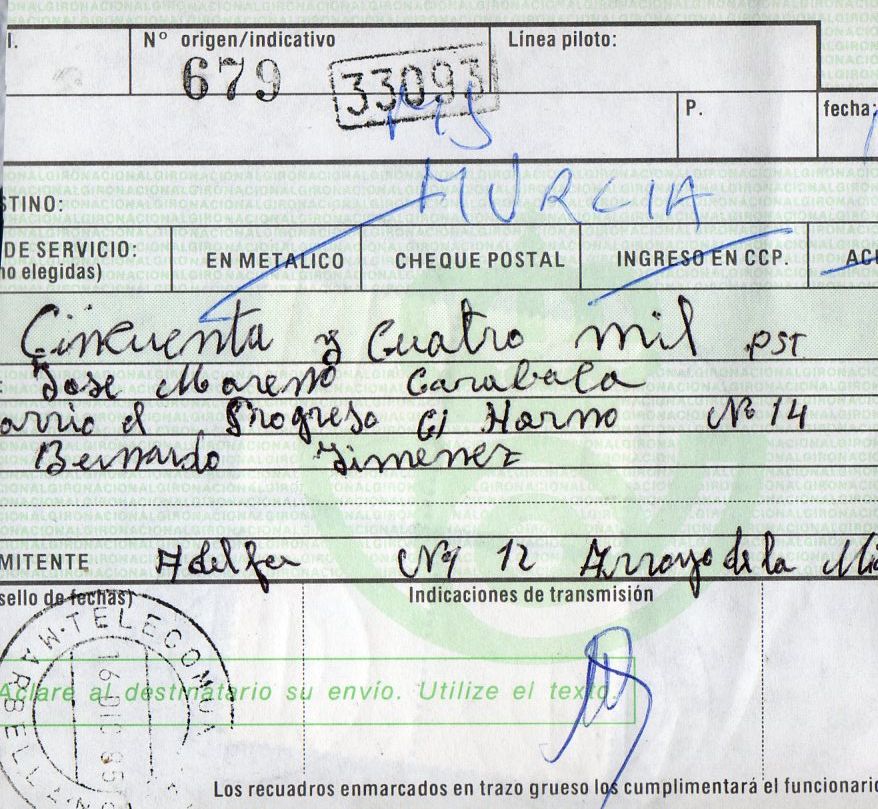 Nº origen/indicativo
Línea piloto:
679
33093
P.
fecha:
STINO:
MURCIA
DE SERVICIO:
EN METALICO
CHEQUE POSTAL
INGRESO EN CCP.
no elegidas)
Cincuenta y Cuatro mil pst
Jose Moreno Carabaca
arrio el Progreso C/ Horno Nº 14
Bernardo Jimenez
MITENTE Adelfa Nº 12 Arroyo de la Mi
sello de fechas)
Indicaciones de transmisión
TELECOMUN
MARBELLA
16 DIC 85
Aclare al destinatario su envío. Utilize el texto.
Los recuadros enmarcados en trazo grueso los cumplimentará el funcionario